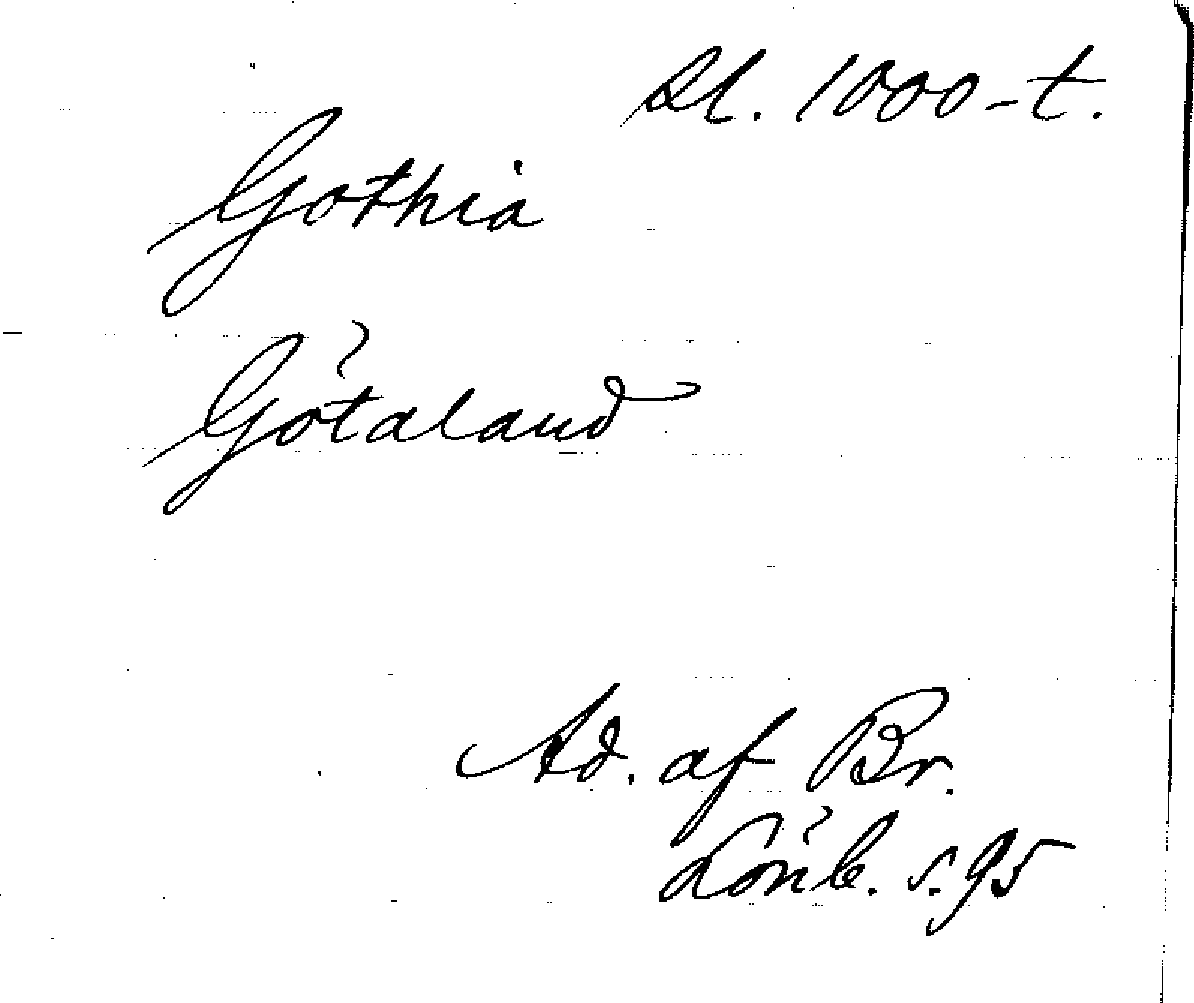 Sl. 1000-t.
Gothia
Götaland
Ad. af Br.
Lönb. s. 95